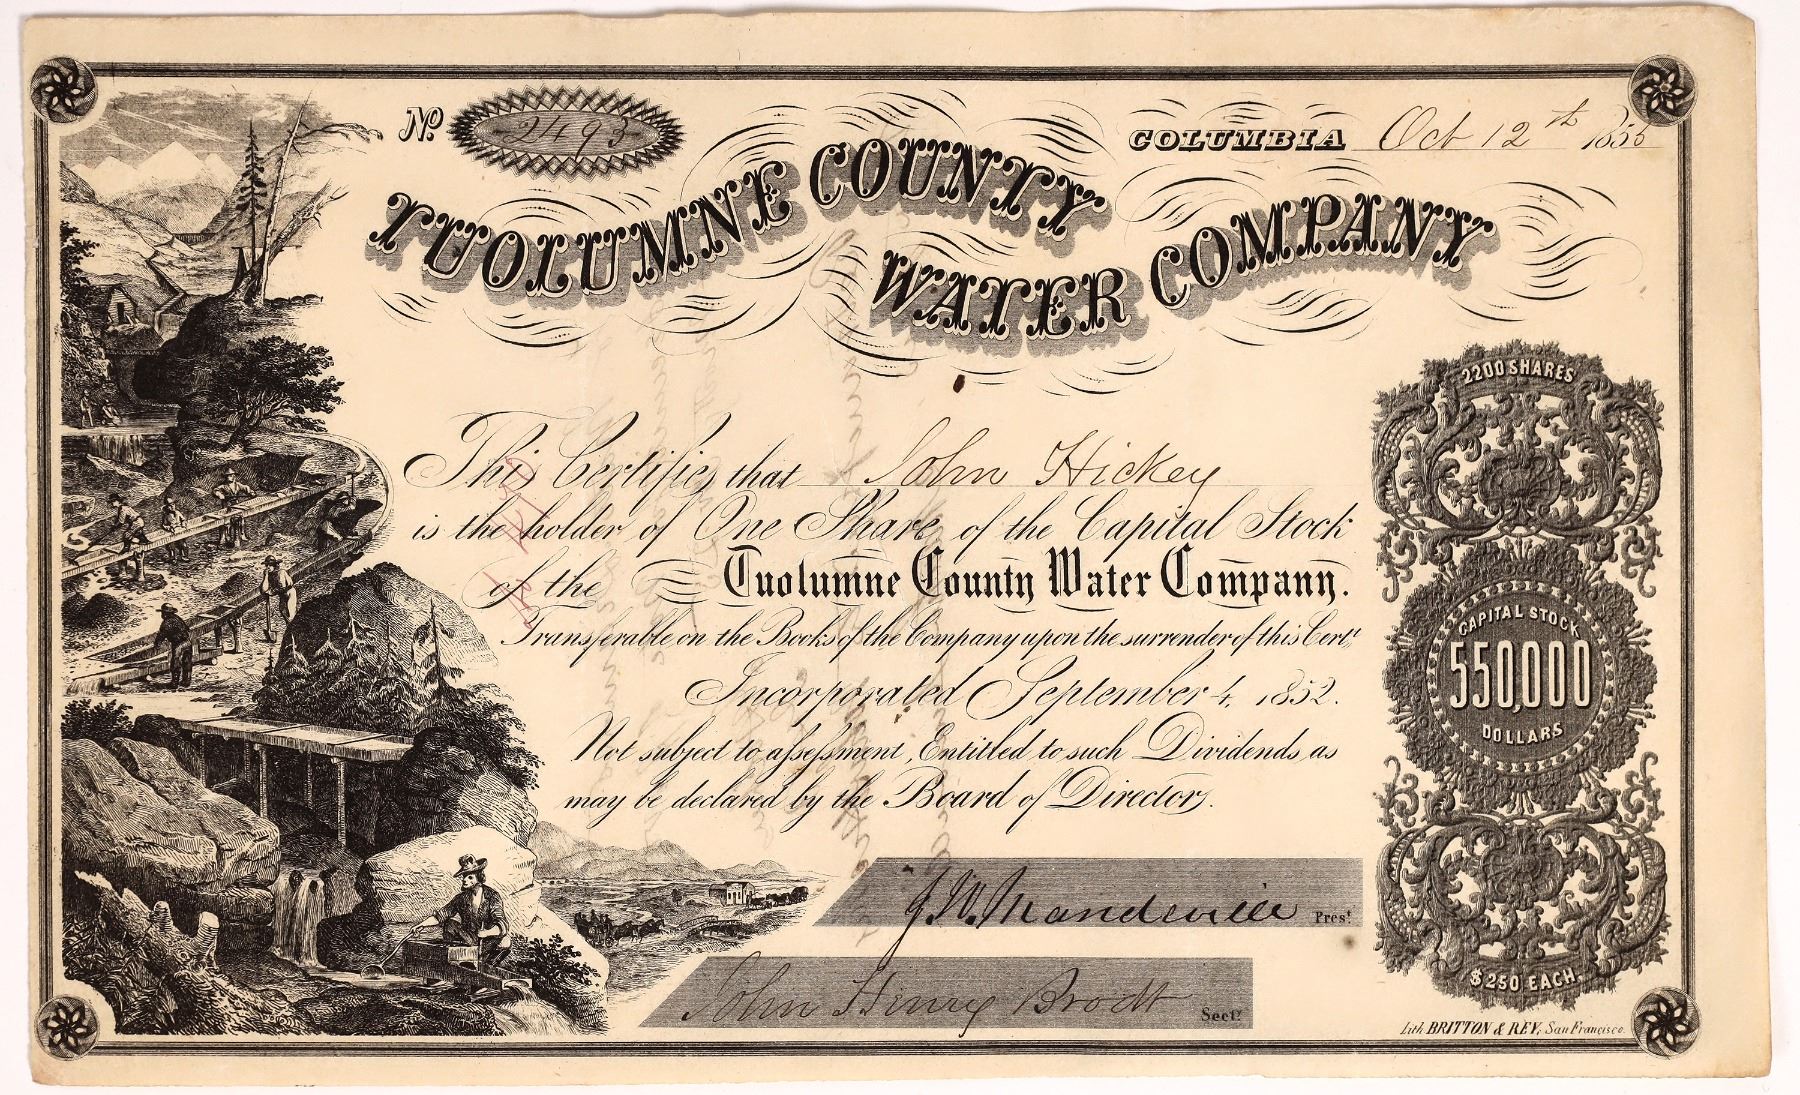 No. 2493
COLUMBIA Oct 12th 1855
TUOLUMNE COUNTY
WATER COMPANY
This Certifies that John Hickey
is the holder of One Share, of the Capital Stock
of the Tuolumne County Water Company.
Transferable on the Books of the Company upon the surrender of this Cert.
Incorporated September 4, 1852.
Not subject to assessment, Entitled to such Dividends as
may be declared by the Board of Directors.
J.W. Mandeville Prest
John Henry Brodt Secty
2200 SHARES
CAPITAL STOCK
550,000
DOLLARS
$250 EACH
Lith. BRITTON & REY, San Francisco.